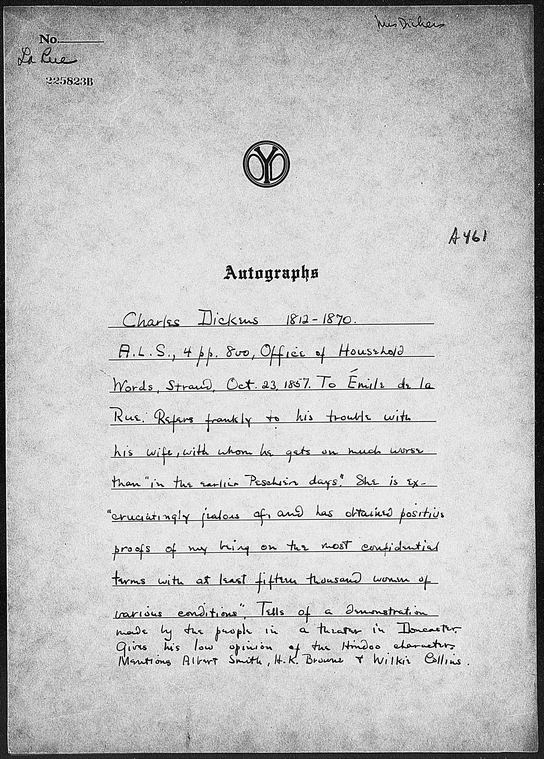 Mrs Dickens
No.
La Rue
225823B
OYO
A461
Autographs
Charles Dickens 1812-1870.
A.L.S., 4 pp. 8vo, Office of Household
Words, Strand, Oct. 23, 1857. To Émile de la
Rue. Refers frankly to his trouble with
his wife, with whom he gets on much worse
than "in the earlier Peschiere days". She is ex-
"cruciatingly jealous of, and has obtained positive
proofs of my being on the most confidential
terms with at least fifteen thousand women of
various conditions". Tells of a demonstration
made by the people in a theater in Doncaster.
Gives his low opinion of the Hindoo character.
Mentions Albert Smith, H.K. Browne & Wilkie Collins.